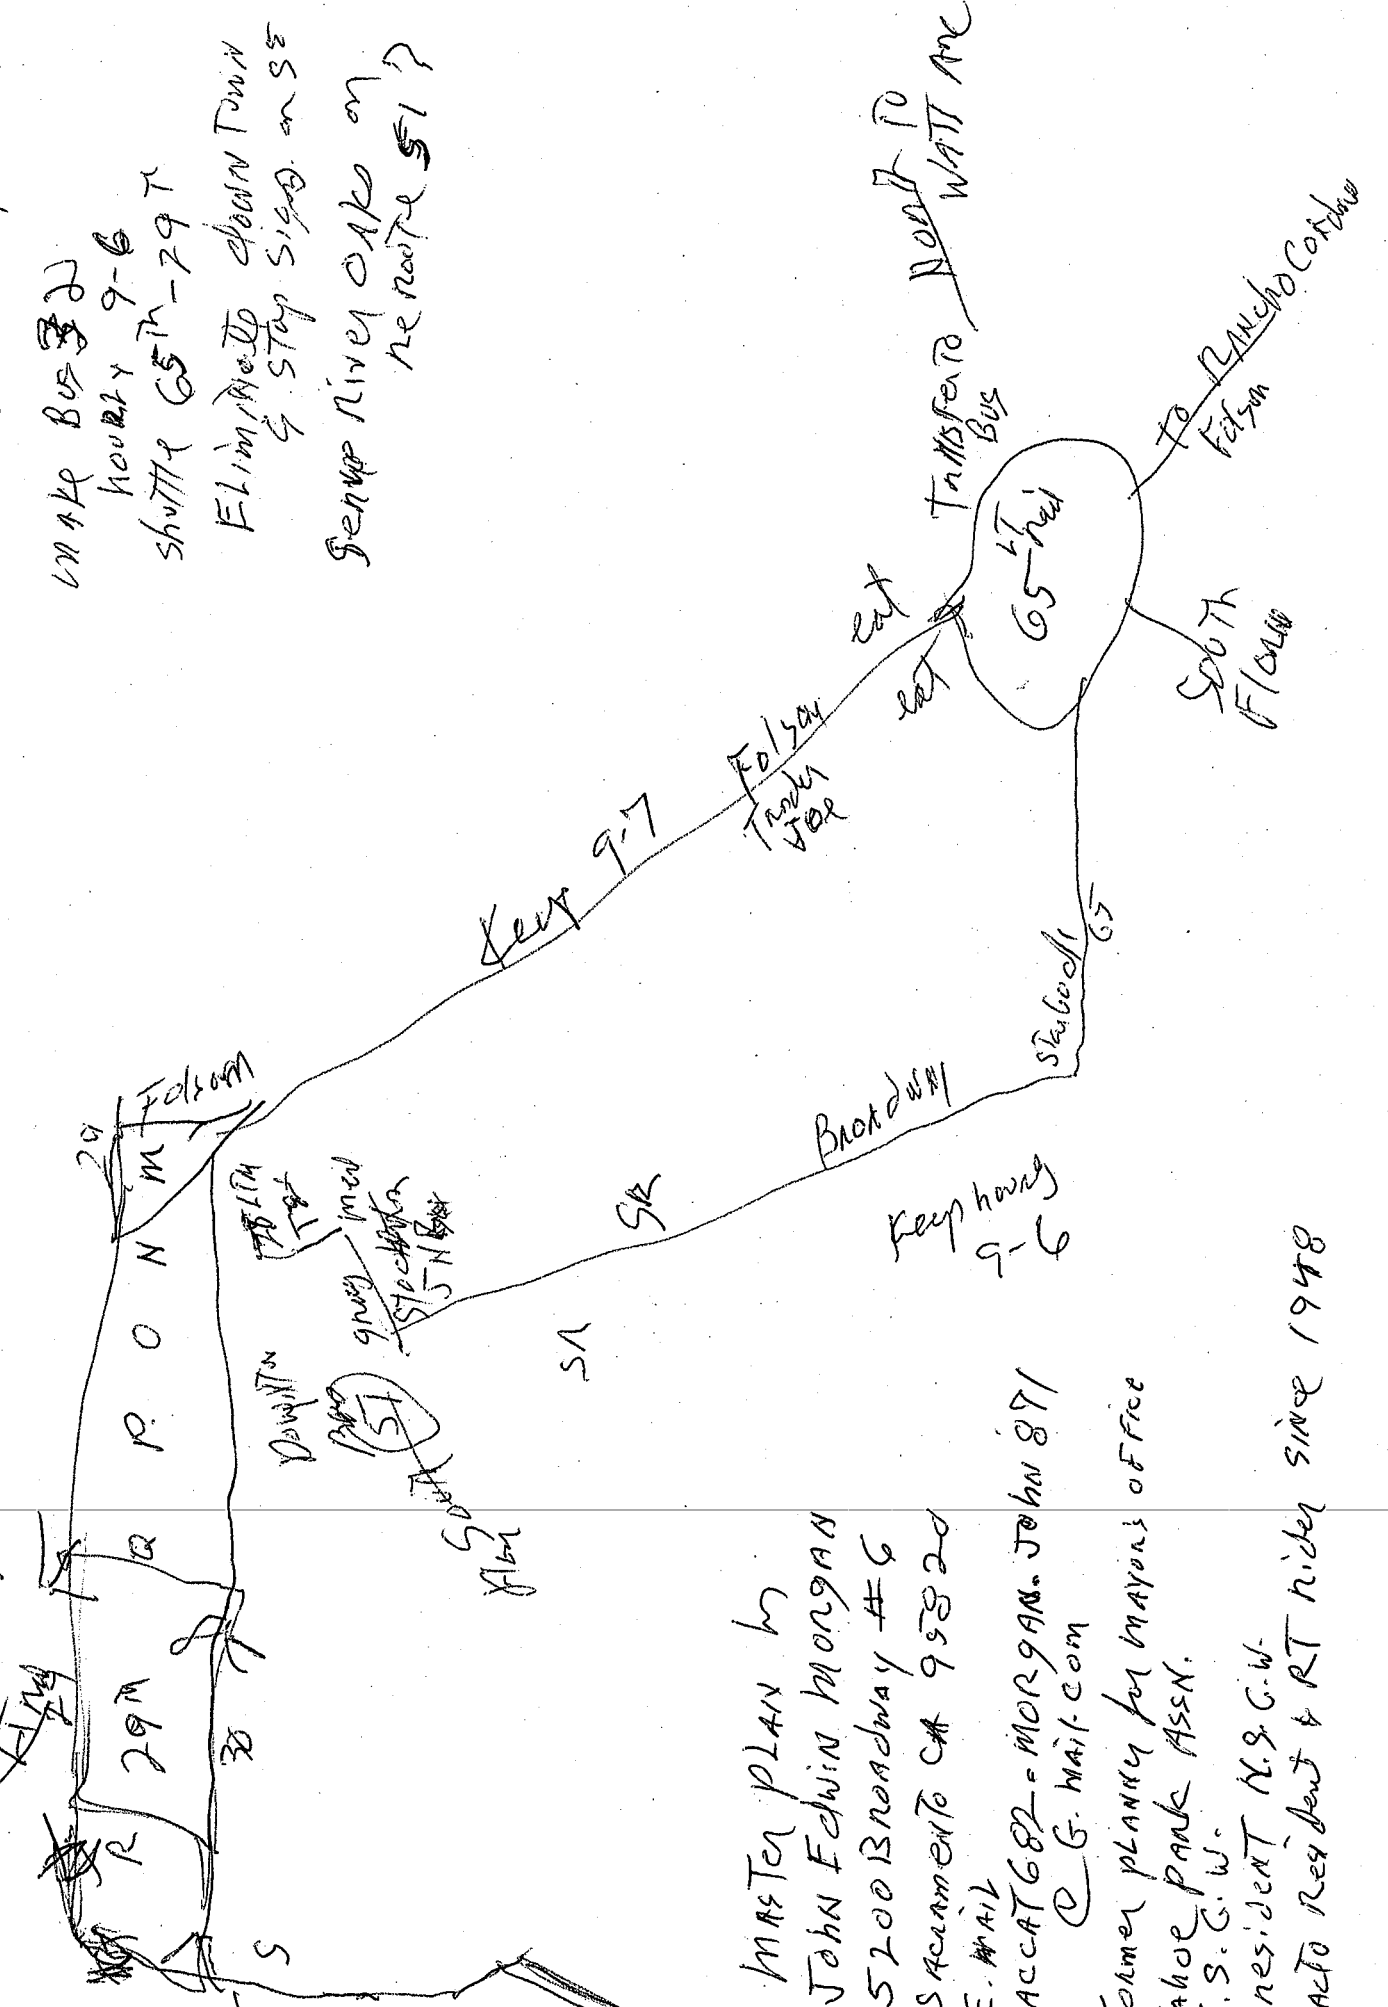 make Bus 32
hourly 9-6
shuttle 65th-29th
Eliminate down Town
& Stop Sign on SE
Serve River Oaks on
Re Route 51?
Transfer TO
Bus
North TO
WATT AVE
65th
TO RANCHO Cordova
Folsom
SOUTH
Florin
eat
eat
Folsom
Trader
Joe
Keep 9-7
Folsom
29
M
N
O
P
Q
29th
R
S
30
Stockton
Downtn
51
South
Flor
SR
SR
Broadway
Keep hours
9-6
65
MASTER PLAN by
John Edwin MORGAN
5200 Broadway #6
SACRAMENTO CA 95820
E. MAIL
ACCAT682-MORGAN.John 871
@ G.mail.com
ormer planner for mayors office
ahoe PARK ASSN.
.S.G.W.
resident N.S.G.W.
acto Resident & RT rider since 1948